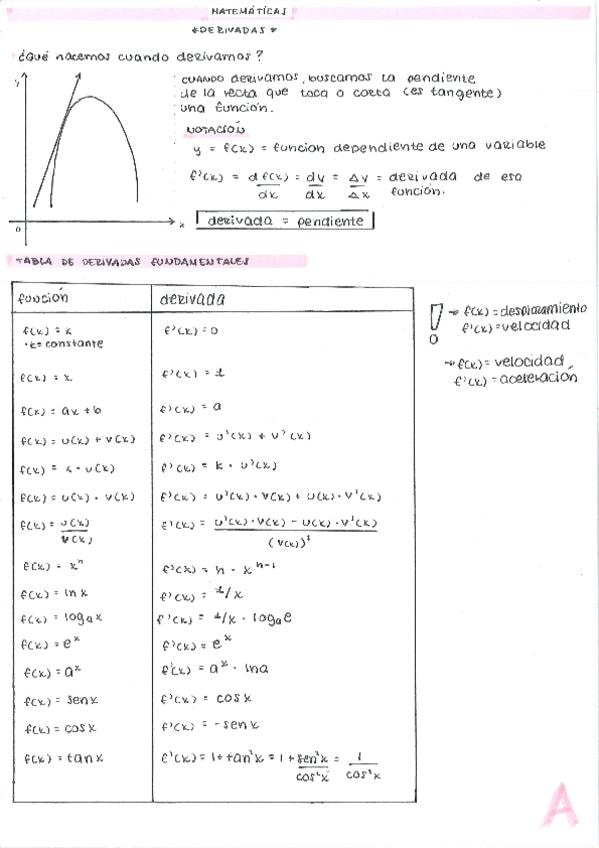 MATEMÁTICAS
*DERIVADAS*
¿Qué hacemos cuando derivamos?
CUANDO derivamos, buscamos la pendiente
de la recta que toca o corta (es tangente)
una función.
NOTACIÓN
y = f(x) = función dependiente de una variable
f'(x) = df(x)/dx = dy/dx = Δy/Δx = derivada de esa función.
derivada = pendiente
y
x
0
TABLA DE DERIVADAS FUNDAMENTALES
función derivada
f(x) = k f'(x) = 0
·k = constante
f(x) = x f'(x) = 1
f(x) = ax + b f'(x) = a
f(x) = u(x) + v(x) f'(x) = u'(x) + v'(x)
f(x) = k · u(x) f'(x) = k · u'(x)
f(x) = u(x) · v(x) f'(x) = u'(x) · v(x) + u(x) · v'(x)
f(x) = u(x)/v(x) f'(x) = u'(x) · v(x) - u(x) · v'(x)/(v(x))²
f(x) = xⁿ f'(x) = n · xⁿ⁻¹
f(x) = ln x f'(x) = 1/x
f(x) = logₐx f'(x) = 1/x · logₐe
f(x) = eˣ f'(x) = eˣ
f(x) = aˣ f'(x) = aˣ · lna
f(x) = senx f'(x) = cosx
f(x) = cosx f'(x) = -senx
f(x) = tanx f'(x) = 1 + tan²x = 1 + sen²x/cos²x = 1/cos²x
! → f(x) = desplazamiento
f'(x) = velocidad
→ f(x) = velocidad
f'(x) = aceleración
A